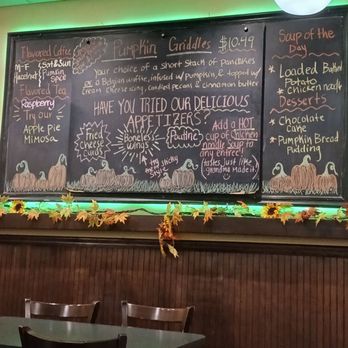 Flavored Coffee
M-F Sat & Sun
Hazelnut Pumpkin
Spice
Flavored Tea
Raspberry
Try our
Apple pie
Mimosa
Pumpkin Griddles $10.49
Your choice of a Short Stack of Pancakes
or a Belgian waffle, infused w/ pumpkin, & topped w/
cream cheese icing, candied pecans & cinnamon butter
HAVE YOU TRIED OUR DELICIOUS
APPETIZERS?
Fried
Cheese
Curds
Boneless
Wings
Poutine
Add a HOT
cup of Chicken
noodle Soup to
any entree!
tastes just like
grandma made it!
Soup of the
Day
* Loaded Baked
Potato
* Chicken noodle
Desserts
* Chocolate
Cake
* Pumpkin Bread
Pudding